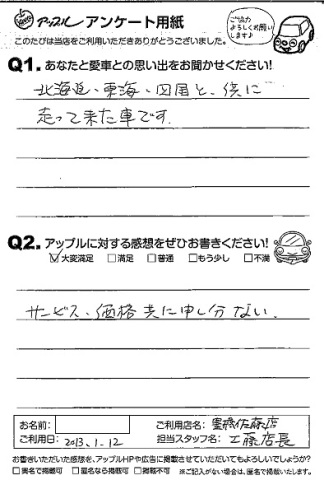 アップル アンケート用紙
このたびは当店をご利用いただきありがとうございました。
ご協力
よろしくお願い
しますよ♪
Q1. あなたと愛車との思い出をお聞かせください!
北海道、東海、四国と、供に
走って来た車です.
Q2. アップルに対する感想をぜひお書きください!
☑大変満足 □満足 □普通 □もう少し □不満
サービス、価格 共に申し分ない.
お名前:
ご利用店名: 佐森店
ご利用日: 2013.1.12
担当スタッフ名: 工藤店長
お書きいただいた感想を、アップルHPや広告に掲載させていただいてもよろしいでしょうか?
□実名で掲載可 □匿名なら掲載可 □掲載不可 ※ご記入がない場合は、匿名で掲載いたします。